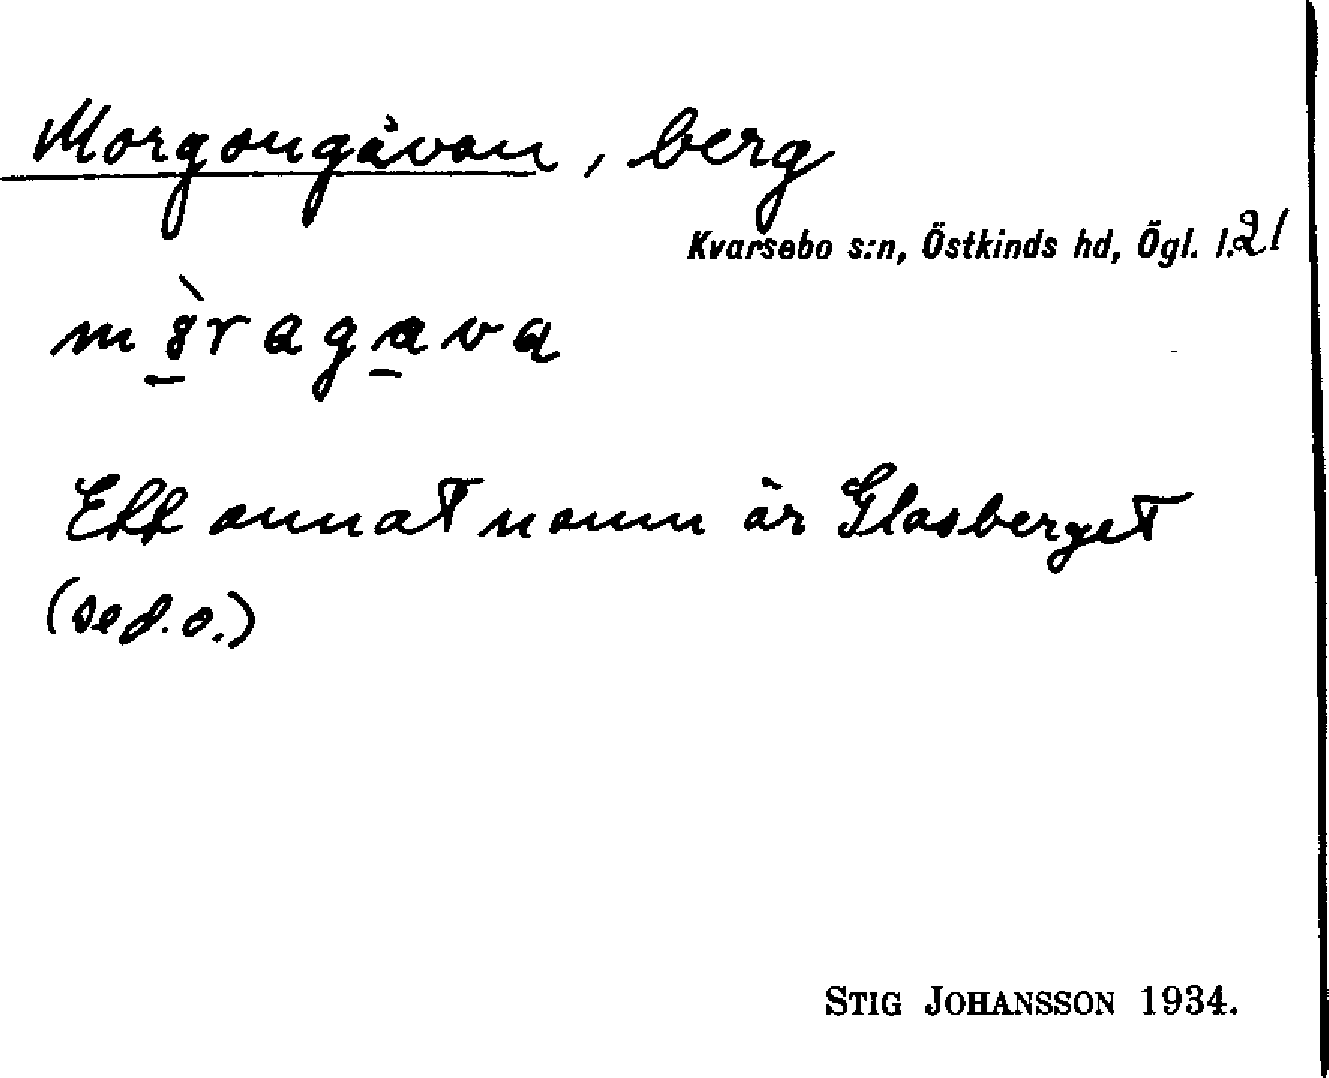 Morgongåvan, berg
Kvarsebo s:n, Östkinds hd, Ögl. l. 21
Ett annat namn är Glasberget
(se d. o.)
STIG JOHANSSON 1934.